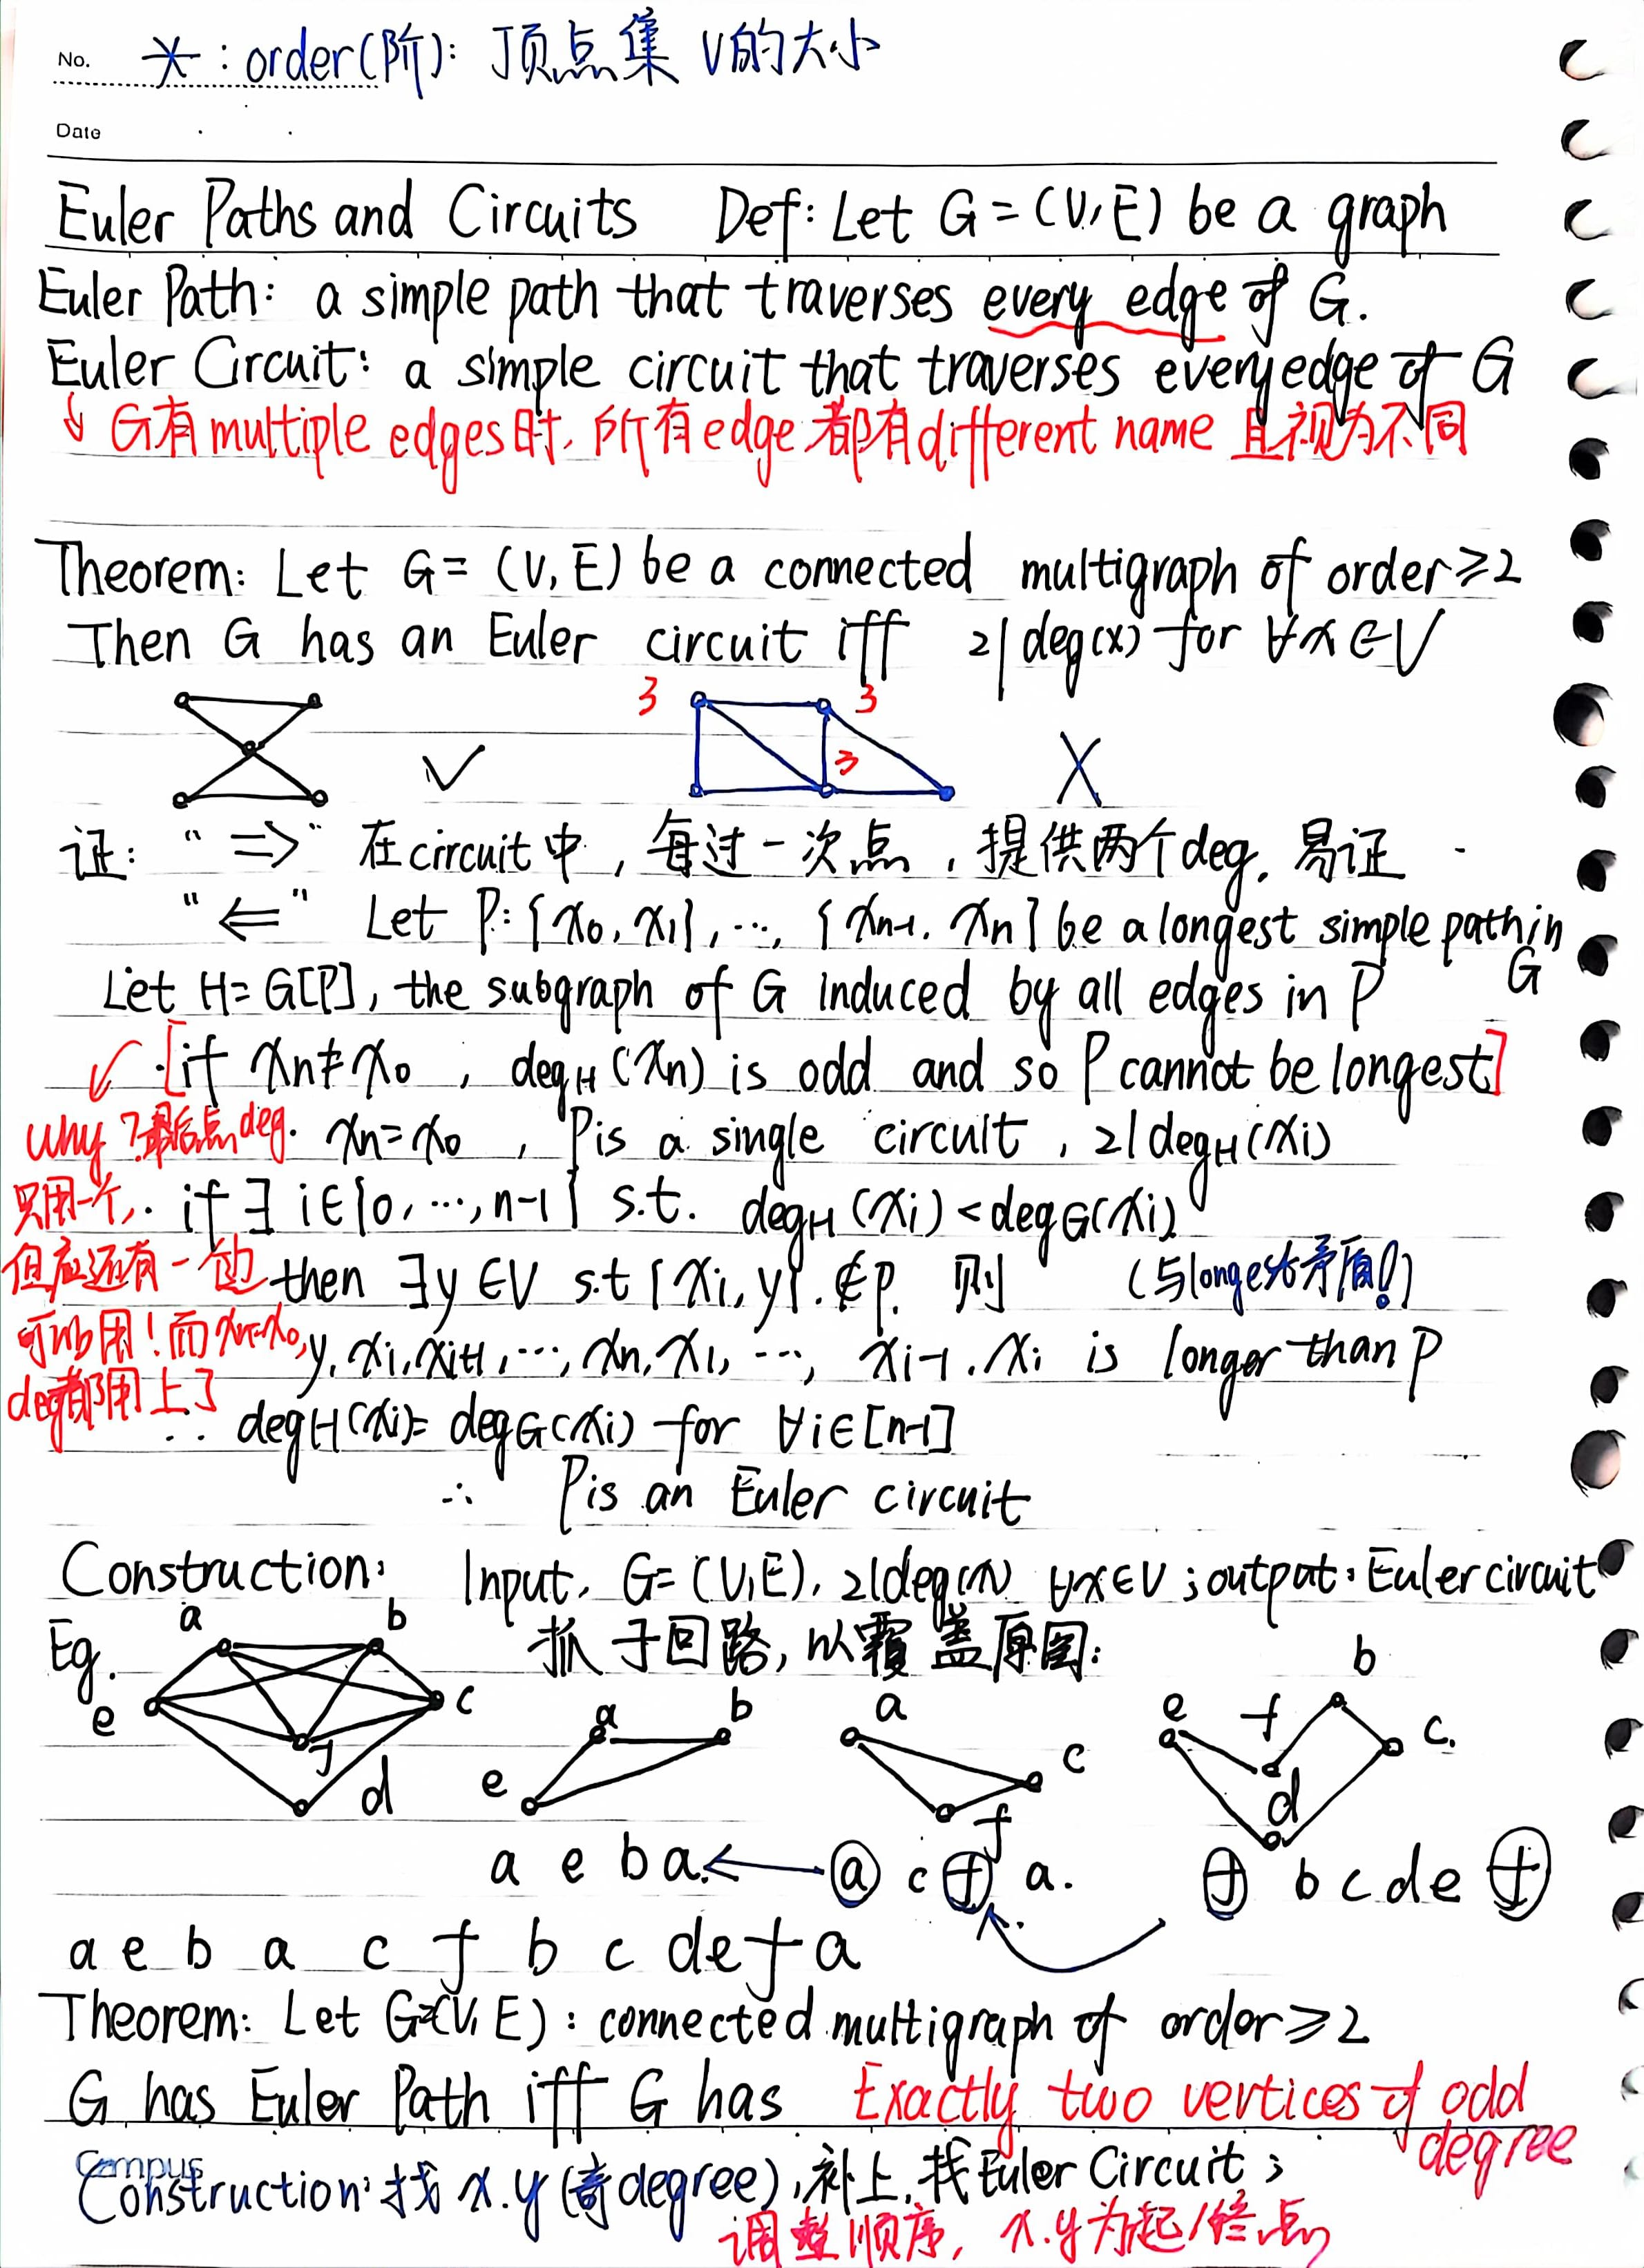 No. *: order(阶): 顶点集 V的大小
Date
Euler Paths and Circuits Def: Let G = (V, E) be a graph
Euler Path: a simple path that traverses every edge of G.
Euler Circuit: a simple circuit that traverses every edge of G
↓ G有multiple edges时, 所有edge都有different name 且视为不同
Theorem: Let G = (V, E) be a connected multigraph of order ≥ 2
Then G has an Euler circuit iff 2|deg(x) for ∀x∈V
3 3
✓ 3 X
证: "⇒" 在circuit中, 每过一次点, 提供两个deg. 易证
"⇐" Let P: {x0, x1}, ..., {xn-1, xn} be a longest simple path in G
Let H = G[P], the subgraph of G induced by all edges in P
✓ [if xn ≠ x0, degH(xn) is odd and so P cannot be longest]
why? 最后点deg.
只用一个,
但应还有一边
可以用! 而xn=x0,
deg都用上了
xn = x0, P is a single circuit, 2|degH(xi)
if ∃ i∈{0, ..., n-1} s.t. degH(xi) < degG(xi)
then ∃y∈V s.t {xi, y} ∉ P. 则 (与longest矛盾!)
y, xi, xi+1, ..., xn, x1, ..., xi-1, xi is longer than P
∴ degH(xi) = degG(xi) for ∀i∈[n-1]
∴ P is an Euler circuit
Construction: Input, G = (V, E), 2|deg(x) ∀x∈V; output: Euler circuit
Eg. 抓子回路, 以覆盖原图:
a b
e c
f
d
a b
e
a
c
f
b
e f c.
d
a e b a. ← ⓐ c ⓕ a. ⓕ b c d e ⓕ
a e b a c f b c d e f a
Theorem: Let G=(V, E): connected multigraph of order ≥ 2
G has Euler Path iff G has Exactly two vertices of odd degree
Campus
Construction: 找 x.y (奇degree), 补上, 找Euler Circuit;
调整顺序, x.y为起/终点